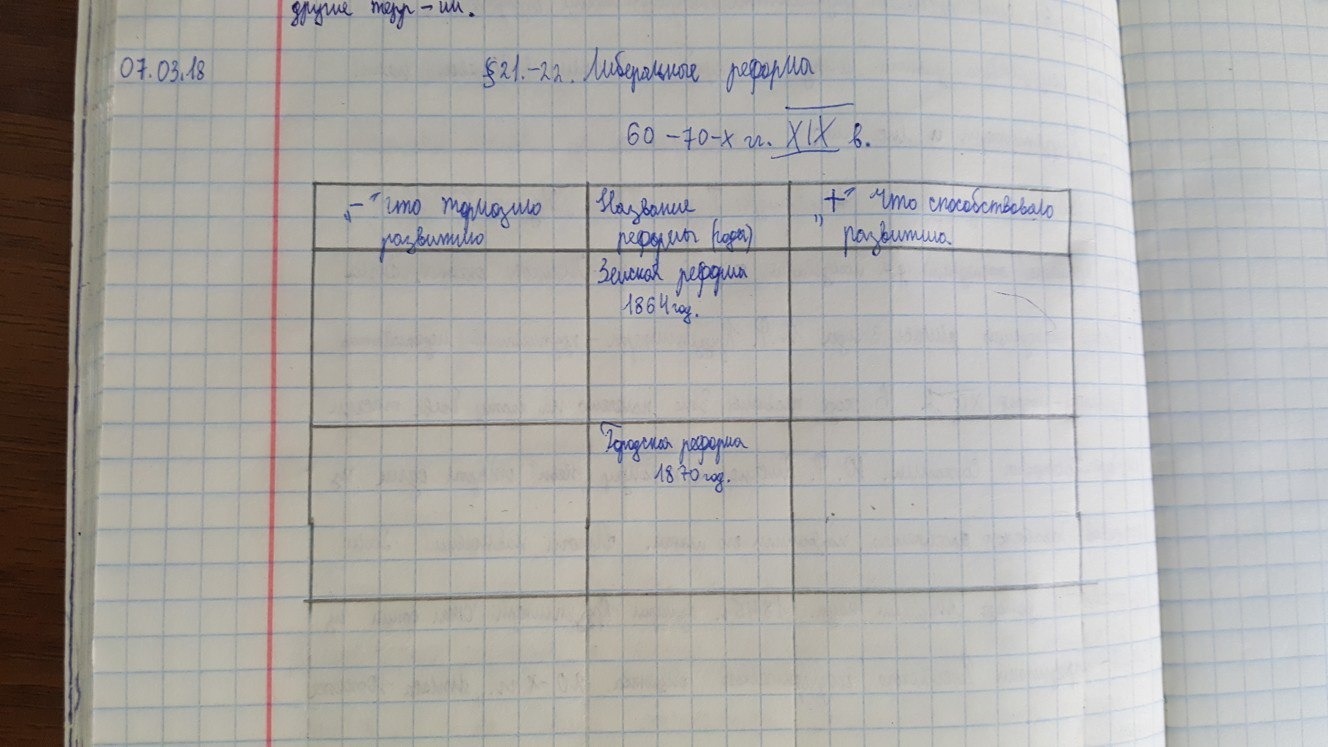 другие терр-ии.
07.03.18
§21.-22. Либеральные реформы
60-70-х гг. XIX в.
„-" что тормозило
развитию
Название
реформы (годы)
„+" Что способствовало
развитию.
Земская реформа
1864 год.
Городская реформа
1870 год.